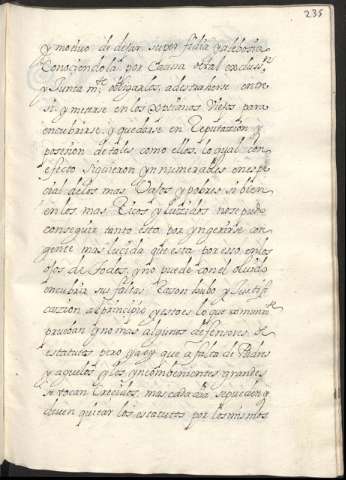 235
y motivo de dejar su perfidia y
Conociendola por Causa
y Junta mte obligarlos, a destraherse entre
si y meterse en los Xptianos Viejos para
encubrirse y quedarse en Reputazion y
posesion de tales como ellos, lo qual con
efecto siguieron ynnumerables en espe
cial de los mas Vajos y pobres si bien
en los mas Ricos y luzidos no se pudo
conseguir tanto esto por yngerirse con
gente mas lucida que esta por eso en los
ojos de todos, y no puede con el olvido
encubrir sus faltas Razon hubo y Justifi
cazion al principio y esto es lo que comunmte
prueban y no mas algunos defensores de
estatutos pero ya oy que a falta de Padres
y aguelos y los ynconbenientes grandes
se tocan Crecidos, mas cada dia se pueden y
deven quitar los estatutos por los mismos